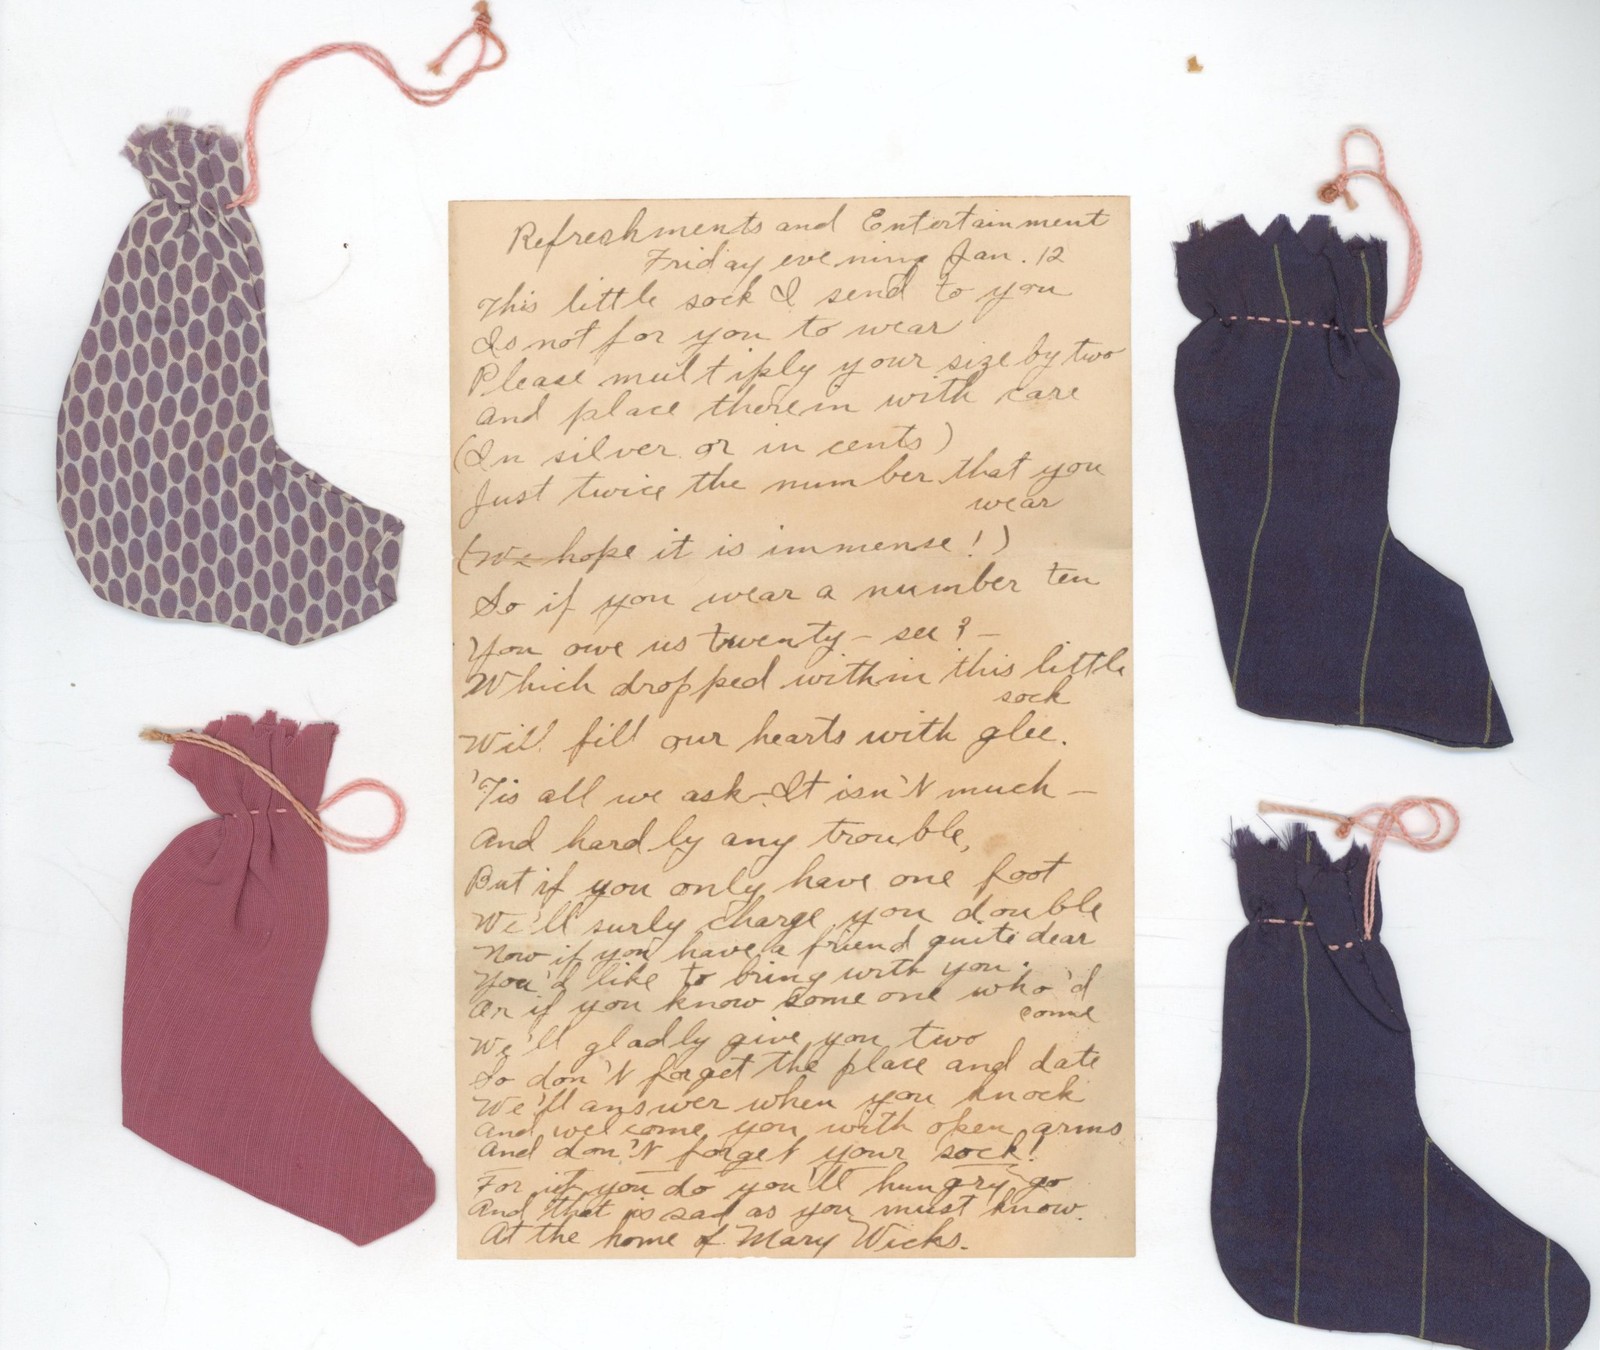 Refreshments and Entertainment
Friday evening Jan. 12
This little sock I send to you
Is not for you to wear
Please multiply your size by two
And place therein with care
(In silver or in cents)
Just twice the number that you
wear
(We hope it is immense!)
So if you wear a number ten
You owe us twenty - see? -
Which dropped within this little
sock
Will fill our hearts with glee.
'Tis all we ask - It isn't much -
And hardly any trouble,
But if you only have one foot
We'll surly charge you double
Now if you have a friend quite dear
You'd like to bring with you.
Or if you know some one who'd
come
We'll gladly give you two
So don't forget the place and date
We'll answer when you knock
And welcome you with open arms
And don't forget your sock!
For if you do you'll hungry go
And that is sad as you must know.
At the home of Mary Wicks.